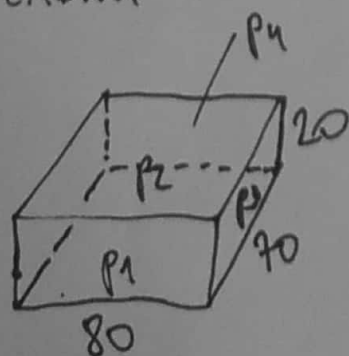 p4
20
p2
p3
70
p1
80